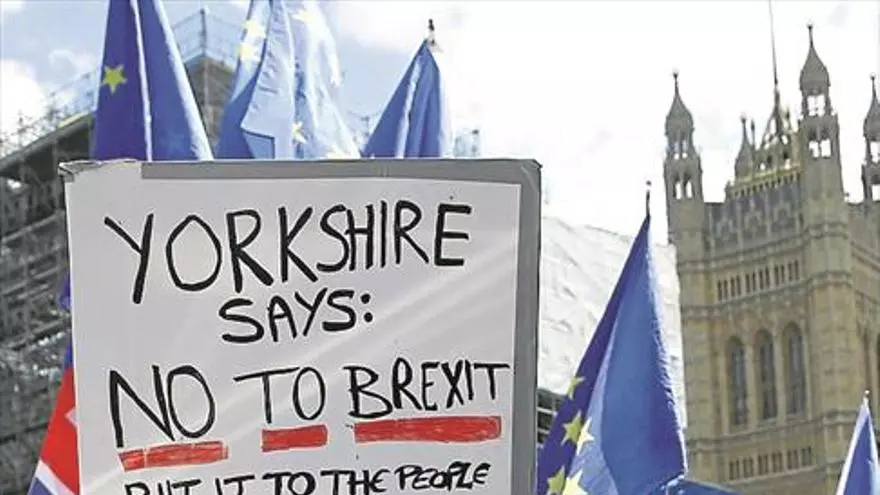 YORKSHIRE
SAYS:
NO TO BREXIT
PUT IT TO THE PEOPLE